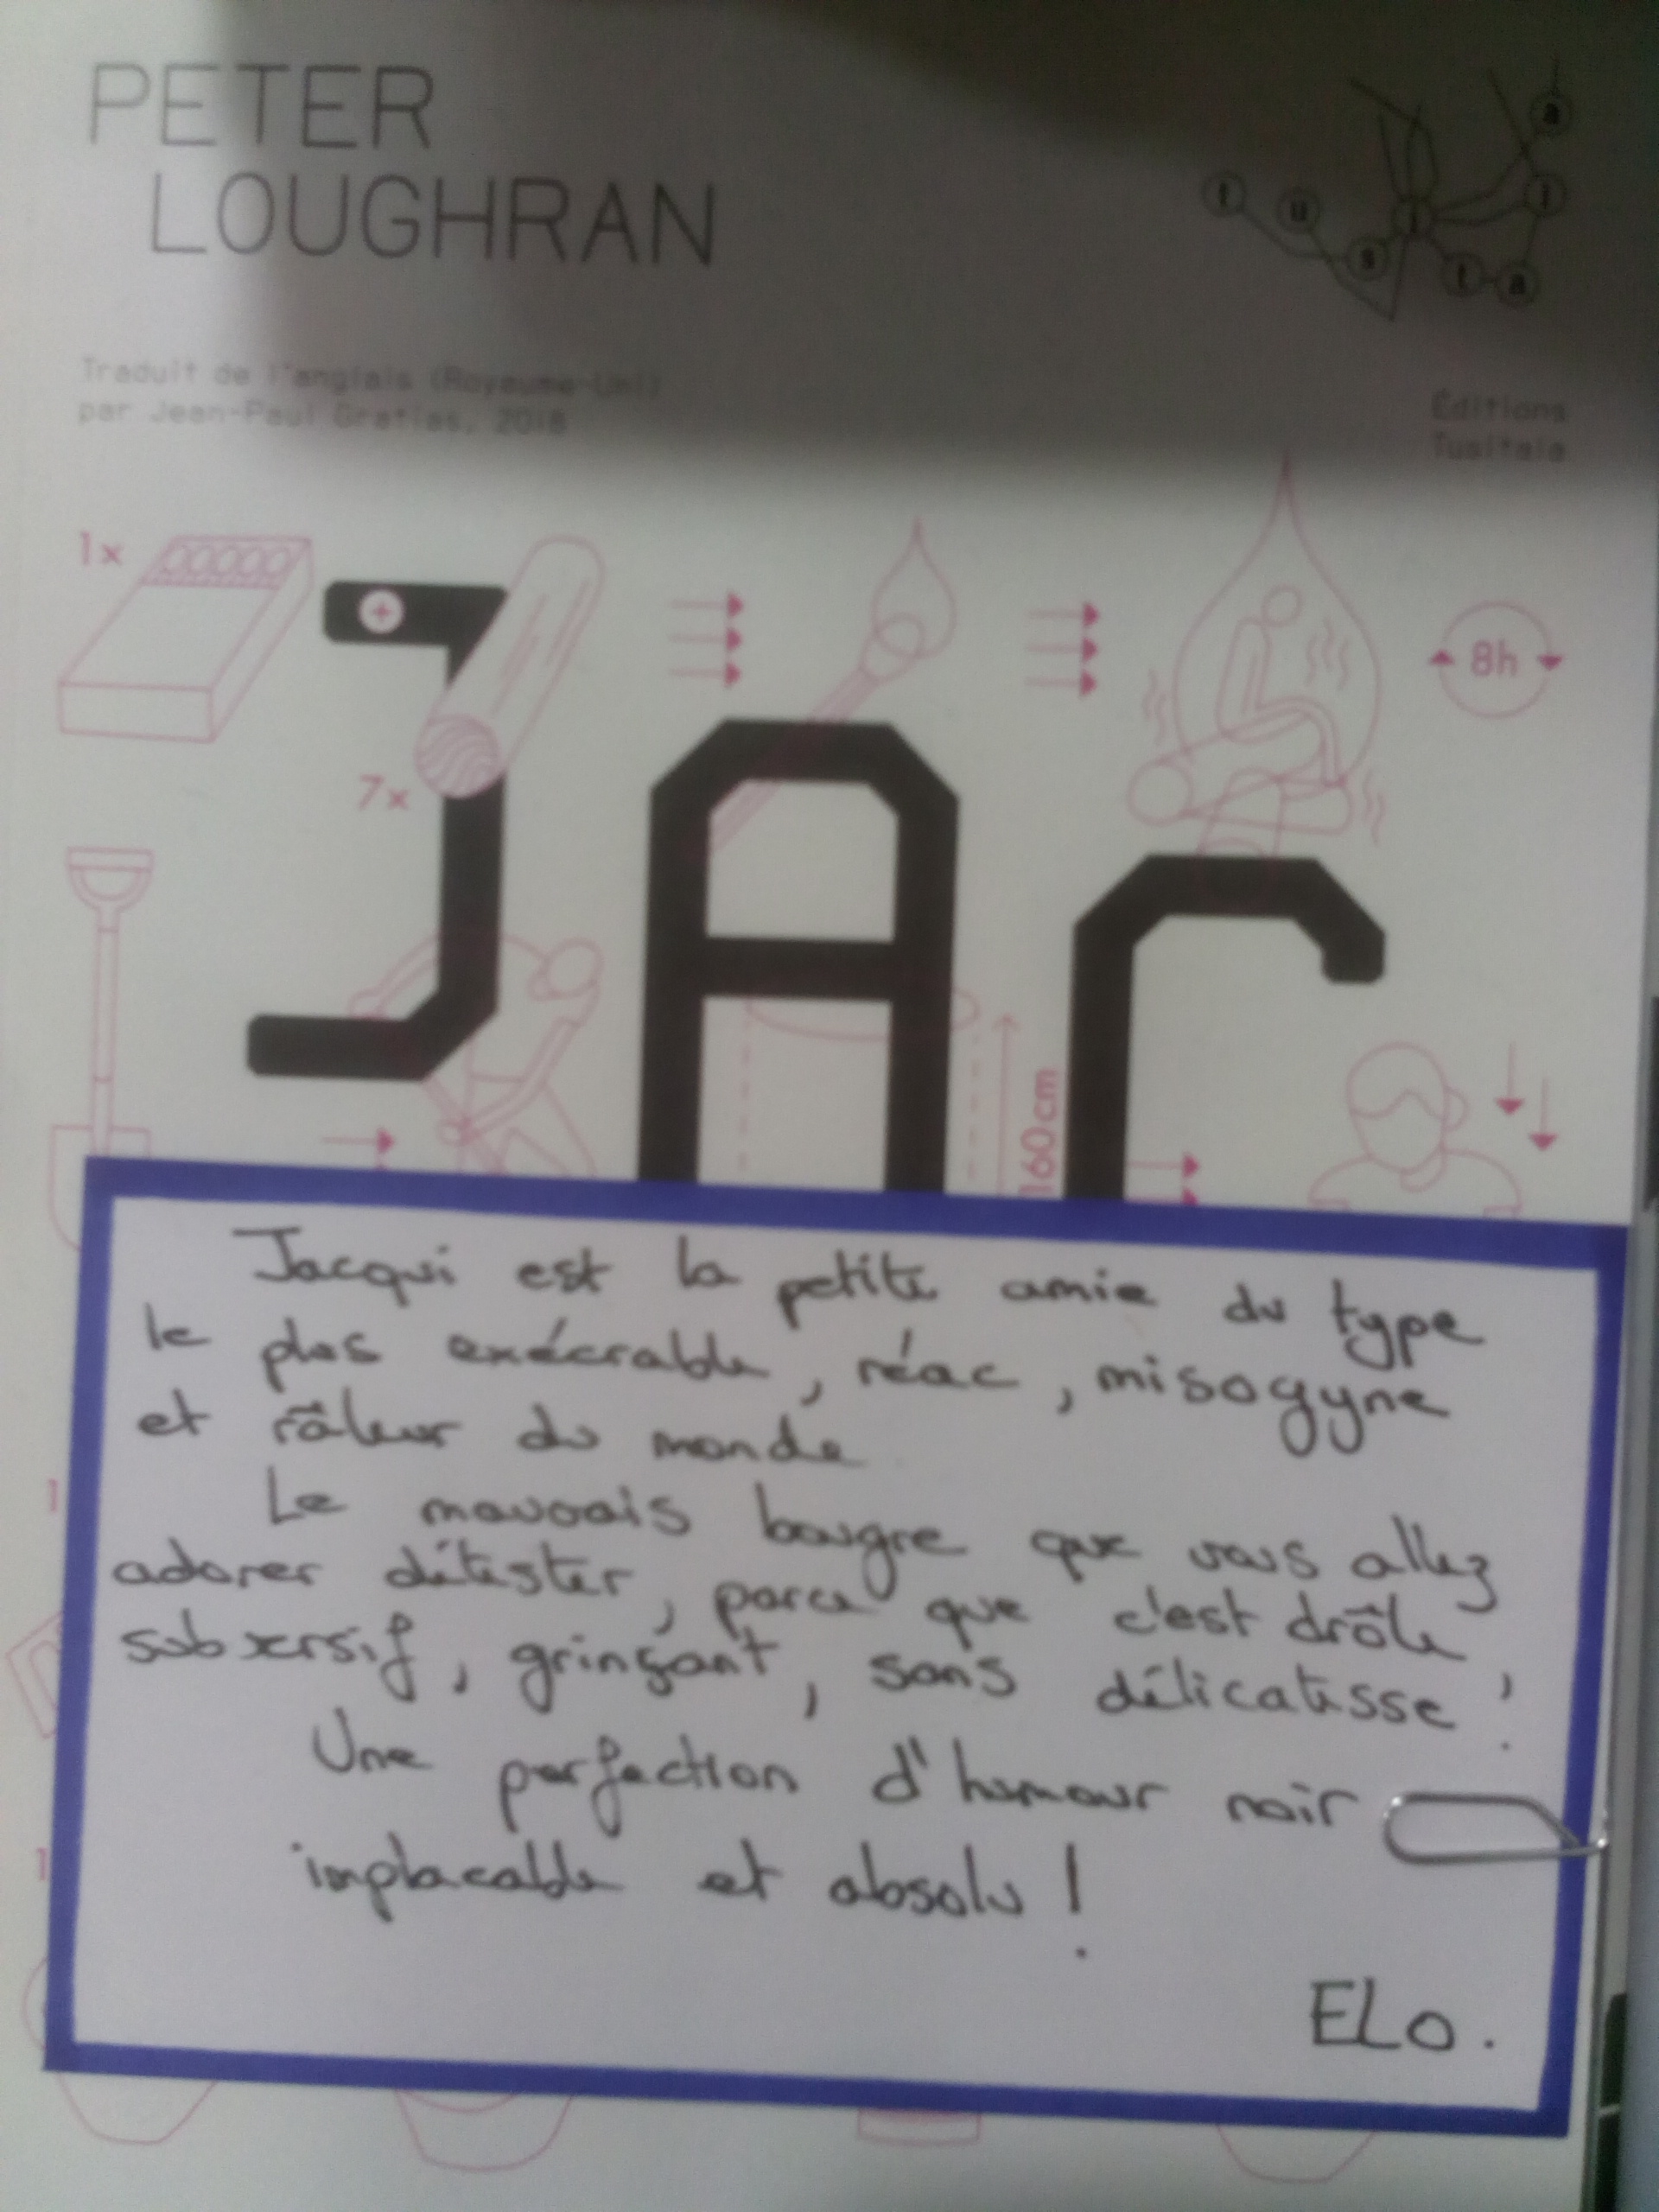 PETER
LOUGHRAN
t u s i t a l a
Traduit de l'anglais (Royaume-Uni)
par Jean-Paul Gratias, 2018
Éditions
Tusitala
1x
+
7x
8h
JAc
160cm
Jacqui est la petite amie du type
le plus exécrable, réac, misogyne
et râleur du monde
Le mauvais bougre que vous allez
adorer détester, parce que c'est drôle,
subversif, grinçant, sans délicatesse !
Une perfection d'humour noir
implacable et absolu !
ELO.
1
1